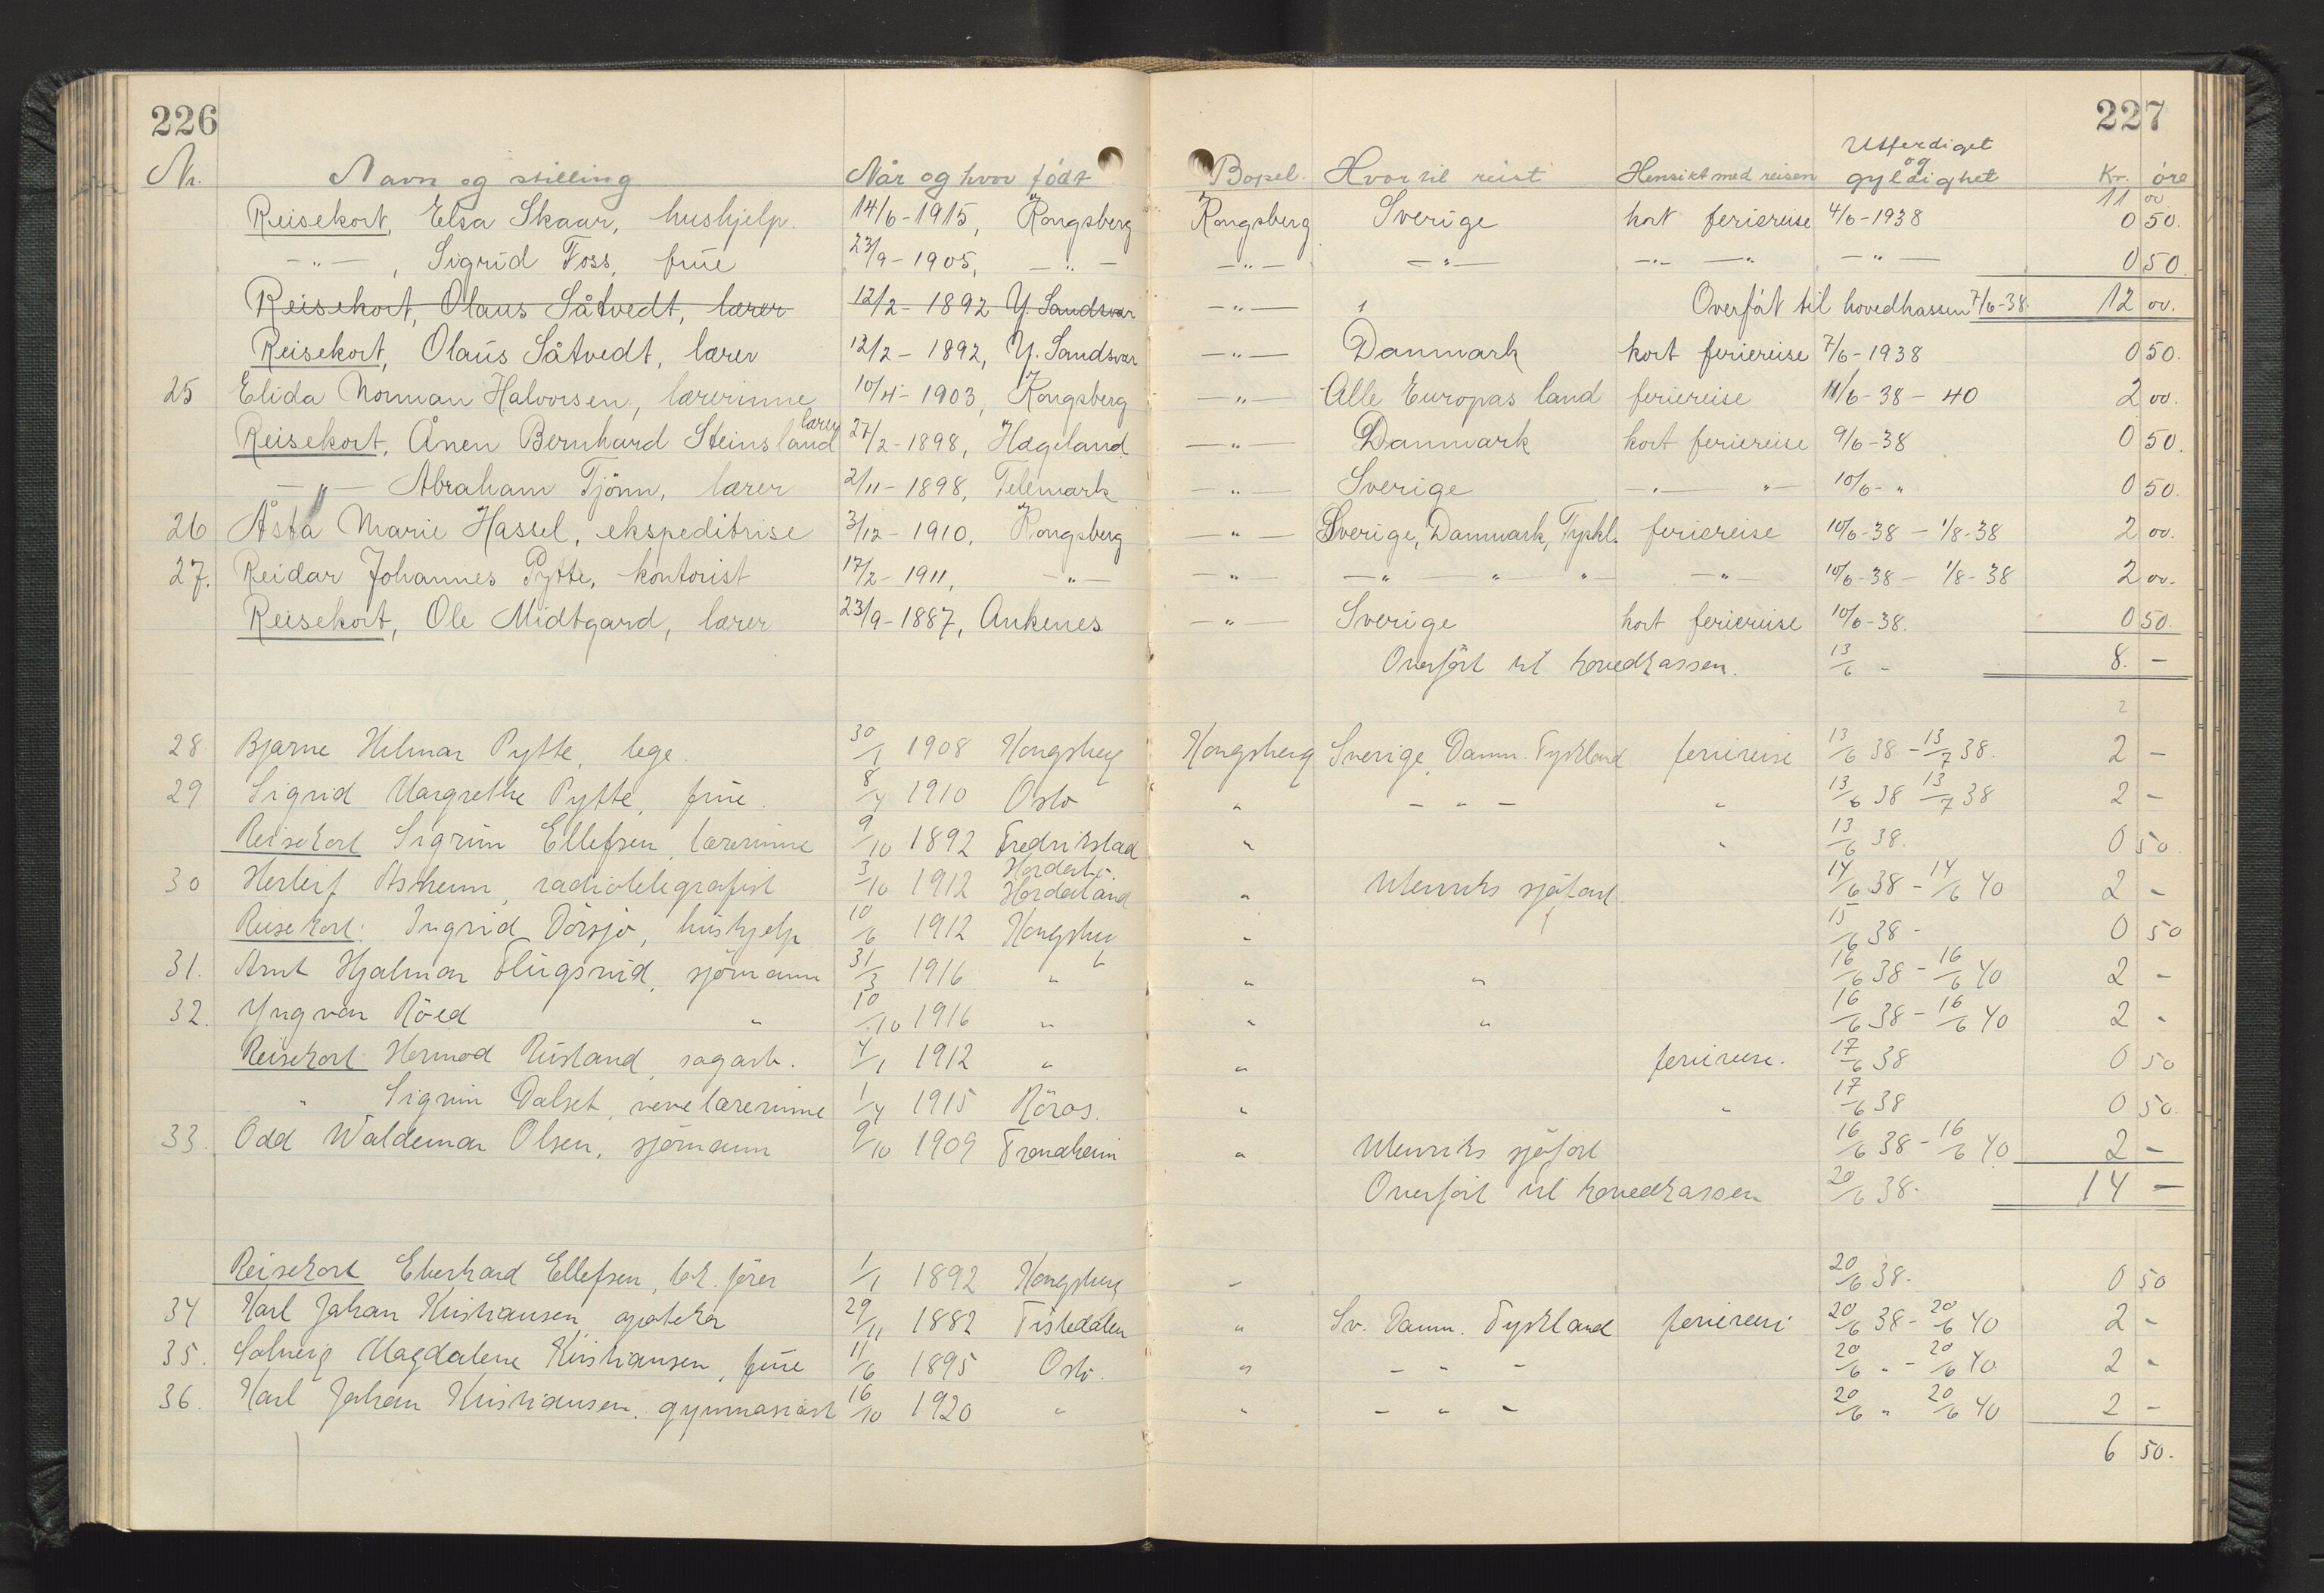 226 227
Utferdiget
Nr. Navn og stilling Når og hvor født Bopel. Hvortil reist Hensikt med reisen og gyldighet Kr. øre
11 00
Reisekort, Elsa Skaar, hushjelp. 14/6-1915, Kongsberg Kongsberg Sverige kort feriereise 4/6-1938 0 50.
—„— , Sigrid Foss, frue 23/9-1905, —„— —„— —„— —„— —„— —„— 0 50.
Reisekort, Olaus Såtvedt, lærer 12/2-1892 Y. Sandsvær —„— Overført til hovedkassen 7/6-38. 12 00.
Reisekort, Olaus Såtvedt, lærer 12/2-1892, Y. Sandsvær —„— Danmark kort feriereise 7/6-1938 0 50.
25 Elida Norman Halvorsen, lærerinne 10/4-1903, Kongsberg —„— Alle Europas land feriereise 11/6-38-40 2 00.
Reisekort, Ånen Bernhard Steinsland lærer 27/2-1898, Hægeland —„— Danmark kort feriereise 9/6-38 0 50.
—„— Abraham Tjönn, lærer 2/11-1898, Telemark —„— Sverige —„— „— 10/6-„ 0 50.
26 Åsta Marie Hassel, ekspeditrise 3/12-1910, Kongsberg —„— Sverige, Danmark, Tyskl. feriereise 10/6-38 — 1/8-38 2 00.
27. Reidar Johannes Pytte, kontorist 17/2-1911, —„— —„— —„ „ „— —„— 10/6-38 — 1/8-38 2 00-
Reisekort, Ole Midtgard, lærer 23/9-1887, Ankenes —„— Sverige kort feriereise 10/6-38. 0 50.
Overført til hovedkassen. 13/6 - 8. -
2
28 Bjarne Hilmar Pytte, lege. 30/1 1908 Kongsberg Kongsberg Sverige, Danm. Tyskland feriereise 13/6 38-13/7 38. 2 -
29 Sigrid Margrethe Pytte, frue. 8/4 1910 Oslo „ - „ - „ 13/6 38 13/7 38 2 -
Reisekort Sigrun Ellefsen, lærerinne 9/10 1892 Fredrikstad „ „ 13/6 38. 0 50.
30 Herleif Askheim, radiotelegrafist 3/10 1912 Hordaland „ Utenriks sjøfart. 14/6 38-14/6 40 2 -
Reisekort: Ingrid Dörsjø, hushjelp 10/6 1912 Kongsberg „ 15/6 38- 0 50
31. Arnt Hjalmar Flugsrud, sjømann 31/3 1916 „ „ „ 16/6 38-16/6 40 2 -
32. Yngvar Röed „ 10/10 1916 „ „ „ 16/6 38-16/6 40 2 -
Reisekort Hermod Rusland, sagarb. 4/1 1912 „ „ feriereise. 17/6 38 0 50
„ Sigrun Dalset, vevelærerinne 1/4 1915 Röros. „ „ 17/6 38 0 50.
33. Odd Waldemar Olsen, sjømann 9/10 1909 Trondheim „ Utenriks sjøfart 16/6 38-16/6 40 2 -
Overført til hovedkassen 20/6 38. 14 -
Reisekort Eberhard Ellefsen, lok. fører 1/1 1892 Kongsberg „ 20/6 38. 0 50
34 Karl Johan Kristiansen, apoteker 29/11 1882 Tistedalen „ Sv. Danm. Tyskland feriereise 20/6 38-20/6 40 2 -
35. Solveig Magdalene Kristiansen, frue 11/6 1895 Oslo. „ - „ - 20/6 „-20/6 40 2 -
36. Karl Johan Kristiansen, gymnasiast 16/10 1920 „ „ - „ - 20/6 „ 20/6 40 2 -
6 50.